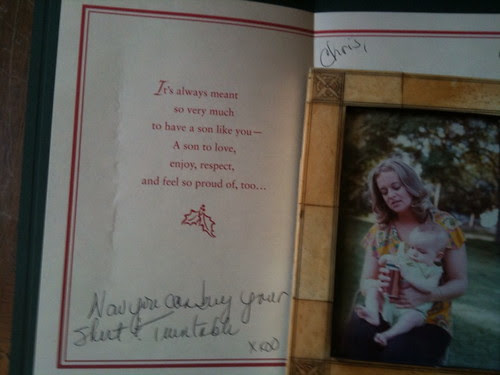 Chris,
It's always meant
so very much
to have a son like you—
A son to love,
enjoy, respect,
and feel so proud of, too...
Now you can buy your
Shirt & Turntable
xxoo